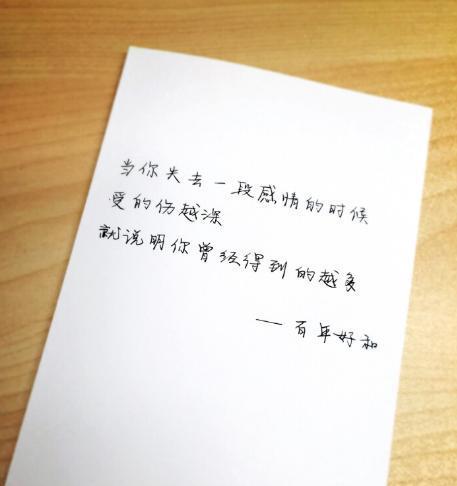 当你失去一段感情的时候
受的伤越深
就说明你曾经得到的越多
——百年好和